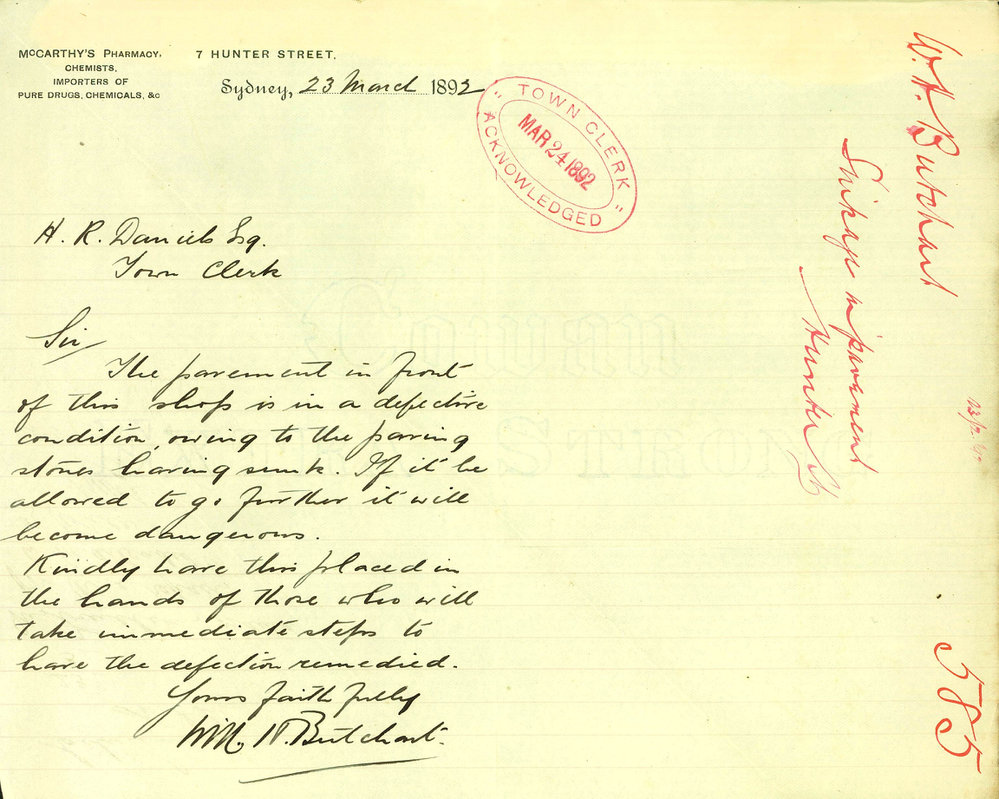 McCARTHY'S PHARMACY,
CHEMISTS,
IMPORTERS OF
PURE DRUGS, CHEMICALS, &c
7 HUNTER STREET.
Sydney, 23 March 1892
" TOWN CLERK "
MAR 24 1892
ACKNOWLEDGED
H. R. Daniels Esq.
Town Clerk
Sir
The pavement in front
of this shop is in a defective
condition, owing to the paving
stones having sunk. If it be
allowed to go further it will
become dangerous.
Kindly have this placed in
the hands of those who will
take immediate steps to
have the defection remedied.
Yours faithfully
Wm. H. Butchart.
W. H. Butchart
Sinkage in pavement
Hunter St
585